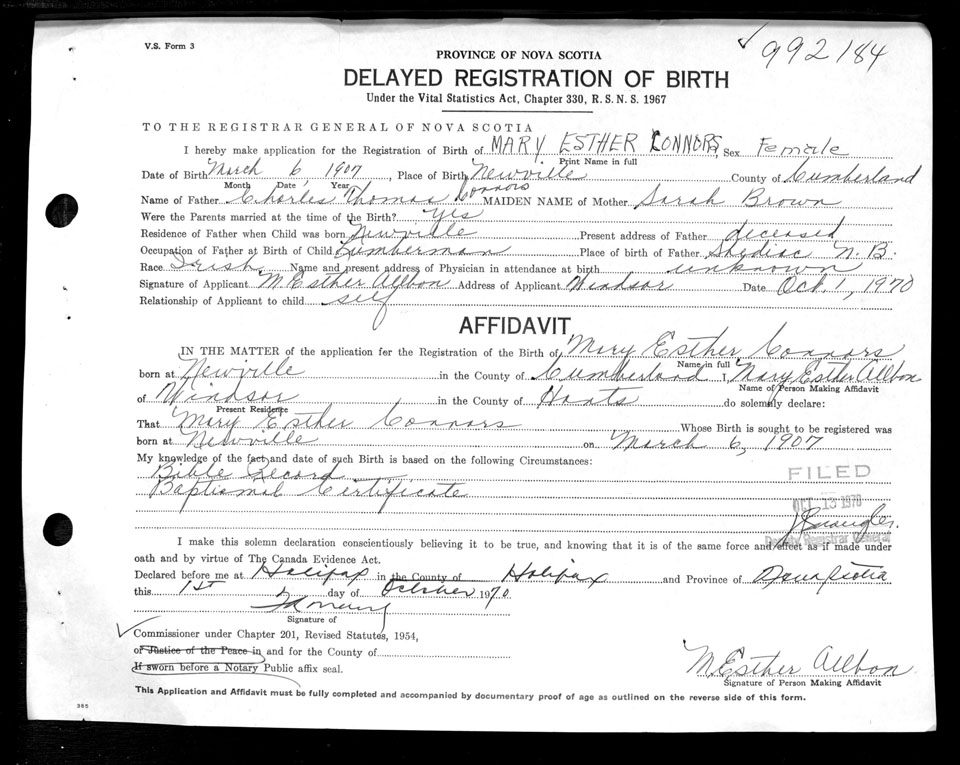 V.S. Form 3
✓ 992184
PROVINCE OF NOVA SCOTIA
DELAYED REGISTRATION OF BIRTH
Under the Vital Statistics Act, Chapter 330, R. S. N. S. 1967
TO THE REGISTRAR GENERAL OF NOVA SCOTIA
I hereby make application for the Registration of Birth of MARY ESTHER CONNORS, Sex Female
Print Name in full
Date of Birth March 6 1907, Place of Birth Newville County of Cumberland
Month Date Year
Name of Father Charles Thomas Connors MAIDEN NAME of Mother Sarah Brown
Were the Parents married at the time of the Birth? Yes
Residence of Father when Child was born Newville Present address of Father deceased
Occupation of Father at Birth of Child Lumberman Place of birth of Father Shediac N.B.
Race Irish Name and present address of Physician in attendance at birth unknown
Signature of Applicant M. Esther Allbon Address of Applicant Windsor Date Oct. 1, 1970
Relationship of Applicant to child self
AFFIDAVIT
IN THE MATTER of the application for the Registration of the Birth of Mary Esther Connors
Name in full
born at Newville in the County of Cumberland I, Mary Esther Allbon
Name of Person Making Affidavit
of Windsor in the County of Hants do solemnly declare:
Present Residence
That Mary Esther Connors Whose Birth is sought to be registered was
born at Newville on March 6, 1907
My knowledge of the fact and date of such Birth is based on the following Circumstances:
Bible Record
Baptismal Certificate
FILED
OCT 13 1970
Deputy Registrar General
I make this solemn declaration conscientiously believing it to be true, and knowing that it is of the same force and effect as if made under
oath and by virtue of The Canada Evidence Act.
Declared before me at Halifax in the County of Halifax and Province of Nova Scotia
this 1st day of October 1970.
Signature of
✓ Commissioner under Chapter 201, Revised Statutes, 1954,
or Justice of the Peace in and for the County of
If sworn before a Notary Public affix seal.
M Esther Allbon
Signature of Person Making Affidavit
This Application and Affidavit must be fully completed and accompanied by documentary proof of age as outlined on the reverse side of this form.
365